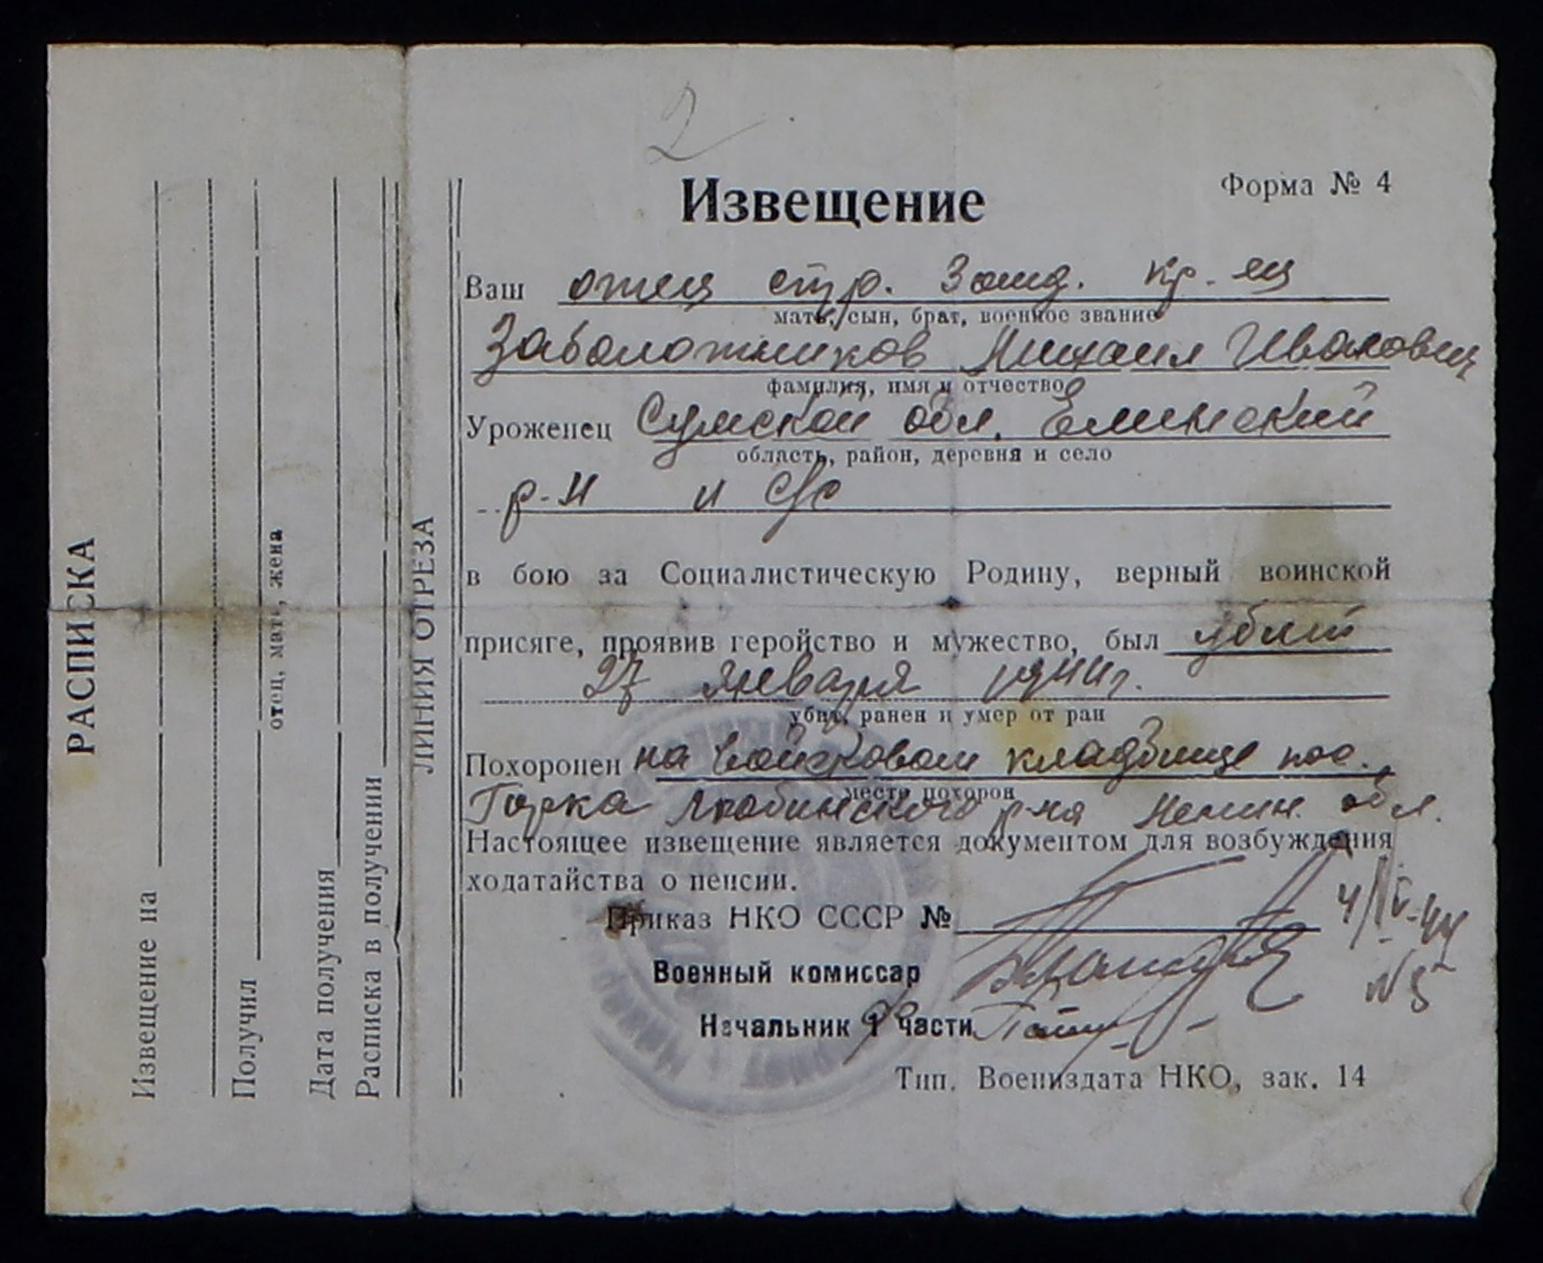 2
Извещение
Форма № 4
Ваш отец стр.
мать, сын, брат, военное звание
Заболотников Михаил Иванович
фамилия, имя и отчество
Уроженец Сумской обл. Елинский
область, район, деревня и село
р-н и с/с
в бою за Социалистическую Родину, верный воинской
присяге, проявив геройство и мужество, был убит
27 января 1944г.
убит, ранен и умер от ран
Похоронен на кладбище пос.
место похорон
Горка р-на Ленин. обл.
Настоящее извещение является документом для возбуждения
ходатайства о пенсии.
Приказ НКО СССР №
4/IV-44
Военный комиссар
N5
Начальник 1 части
Тип. Воениздата НКО, зак. 14
ЛИНИЯ ОТРЕЗА
РАСПИСКА
Извещение на
Получил
отец, мать, жена
Дата получения
Расписка в получении